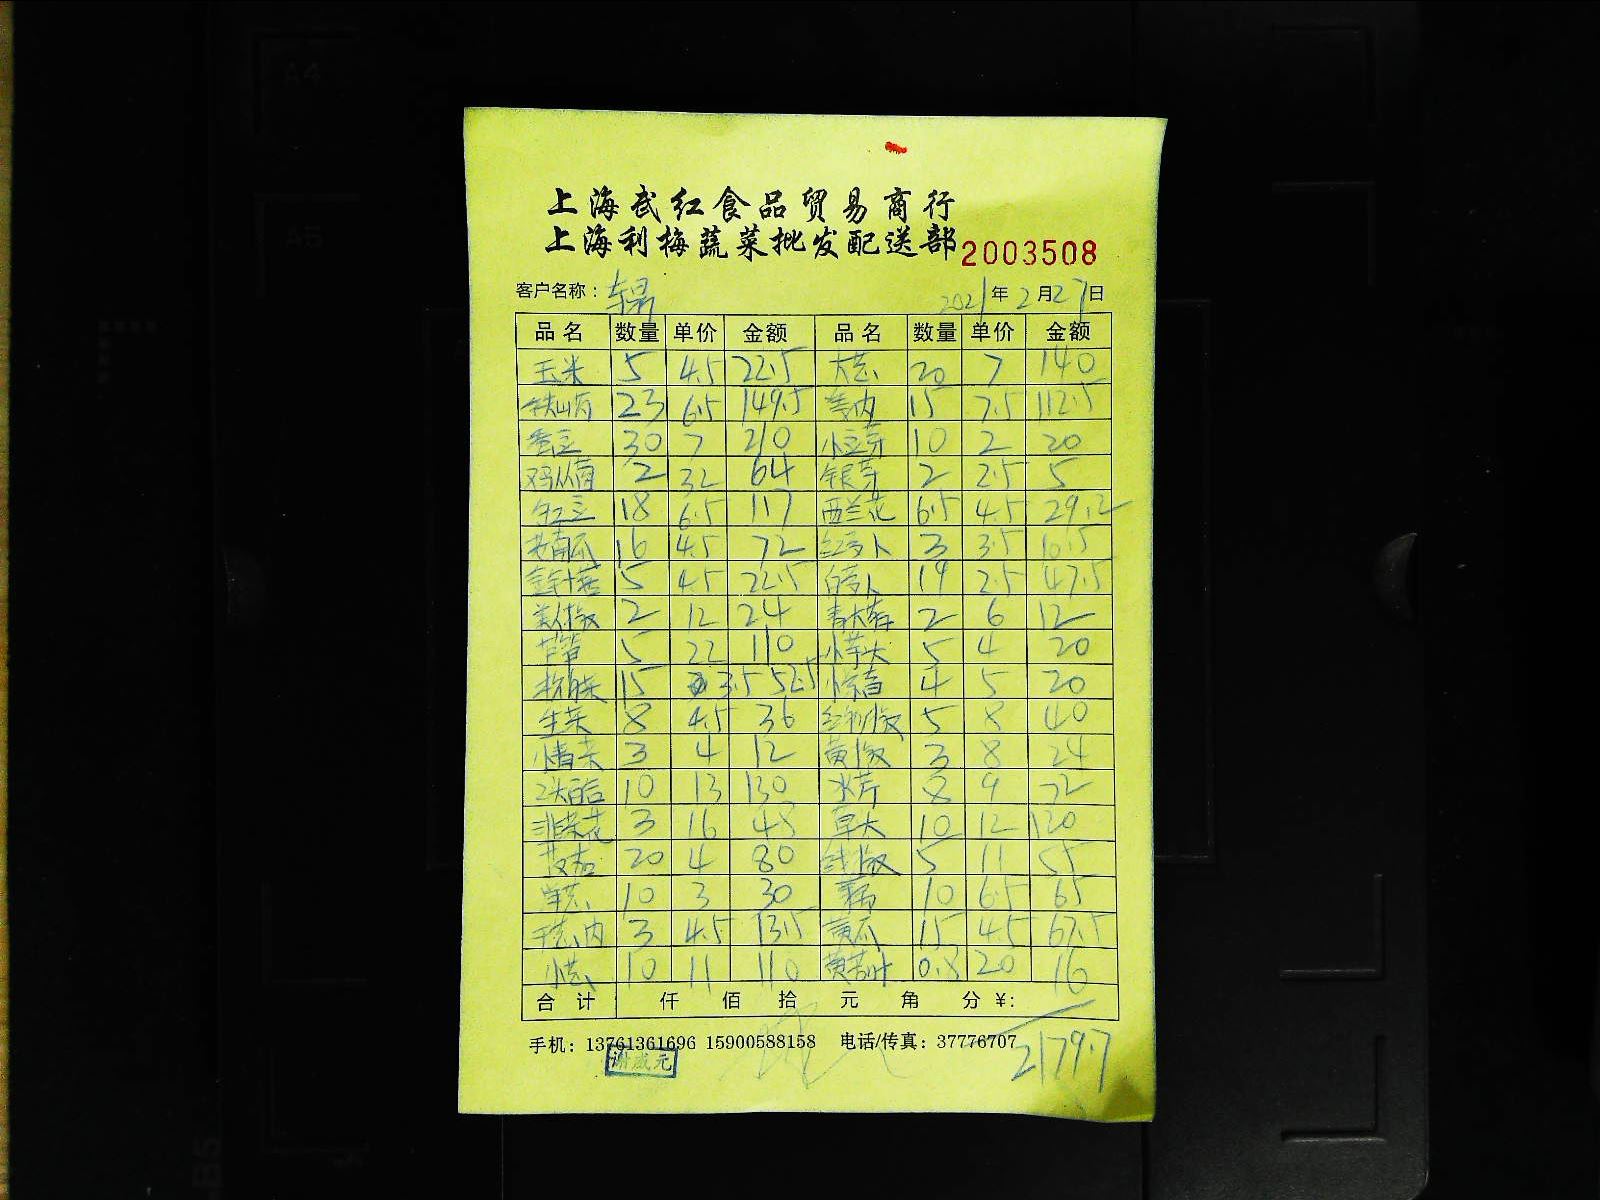 上海武红食品贸易商行
上海利梅蔬菜批发配送部 2003508
客户名称： 2021年2月27日
品名 数量 单价 金额 品名 数量 单价 金额
玉米 5 4.5 22.5 大芸 20 7 140
铁山药 23 6.5 149.5 15 7.5 112.5
蚕豆 30 7 210 小豆芽 10 2 20
鸡从菌 2 32 64 银芽 2 2.5 5
红豆 18 6.5 117 西兰花 6.5 4.5 29.2
老南瓜 16 4.5 72 红萝卜 3 3.5 10.5
金针菇 5 4.5 22.5 白萝卜 19 2.5 47.5
美人椒 2 12 24 青大蒜 2 6 12
芦笋 5 22 110 小芋艿 5 4 20
15 3.5 52.5 4 5 20
生菜 8 4.5 36 红椒 5 8 40
小青菜 3 4 12 黄椒 3 8 24
10 13 130 水芹 8 9 72
韭菜花 3 16 48 草头 10 12 120
茄 20 4 80 线椒 5 11 55
10 3 30 10 6.5 65
3 4.5 13.5 黄瓜 15 4.5 67.5
小芸 10 11 110 黄芥叶 0.8 20 16
合计 仟 佰 拾 元 角 分 ¥:
手机：13761361696 15900588158 电话/传真：37776707
2179.7
谢成元